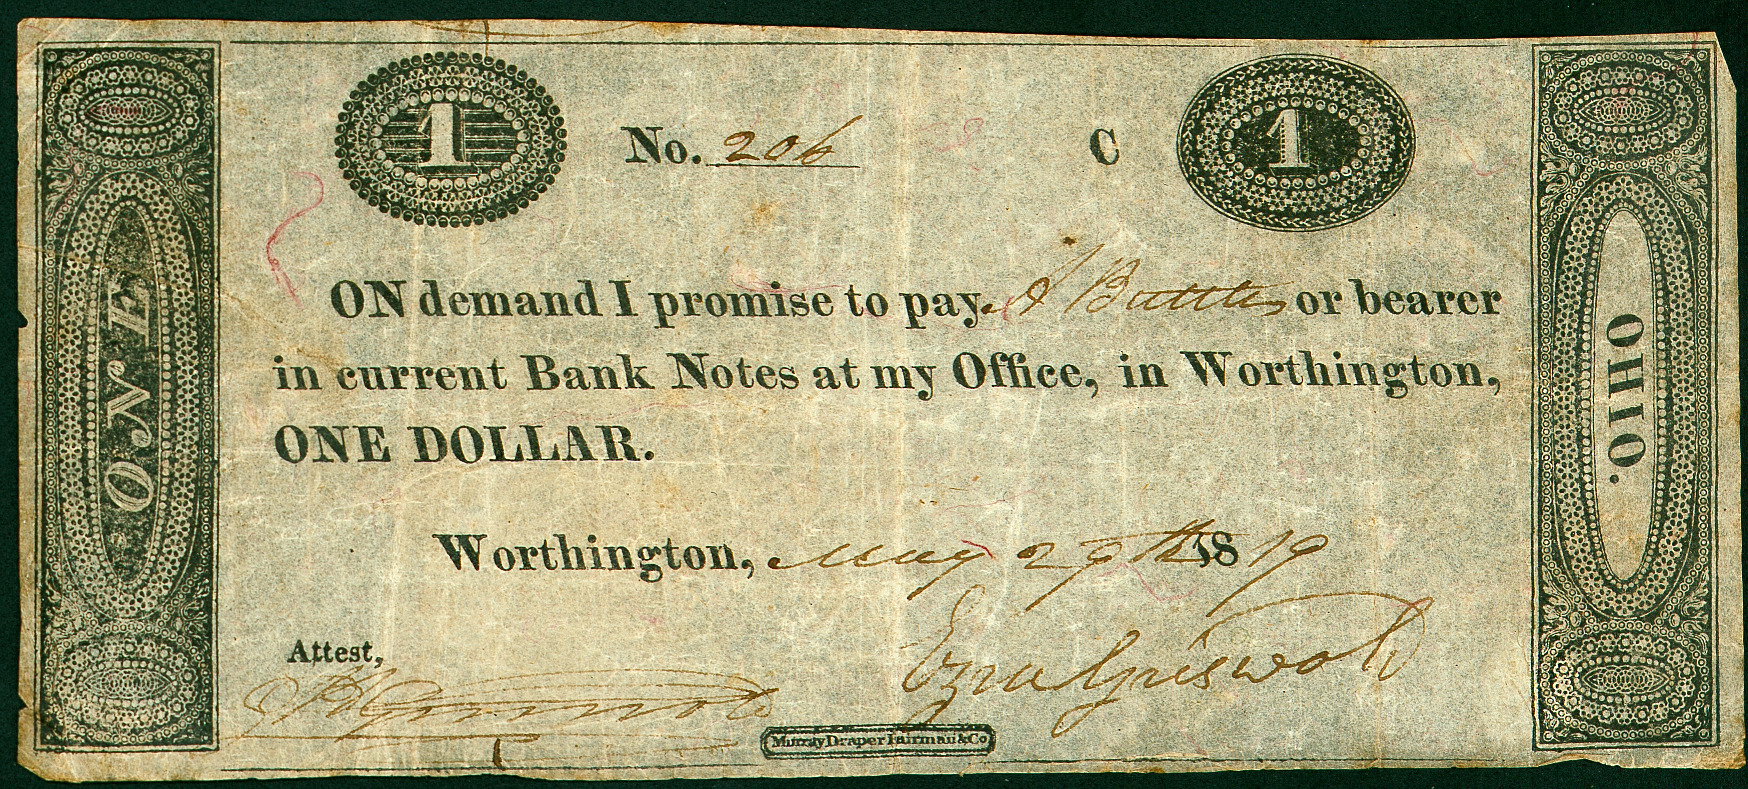 1 No. 206 C 1
ON demand I promise to pay A Buttles or bearer
in current Bank Notes at my Office, in Worthington,
ONE DOLLAR.
Worthington, May 29th 1819
Attest,
Ezra Griswold
Griswold
Murray Draper Fairman & Co
ONE
OHIO.